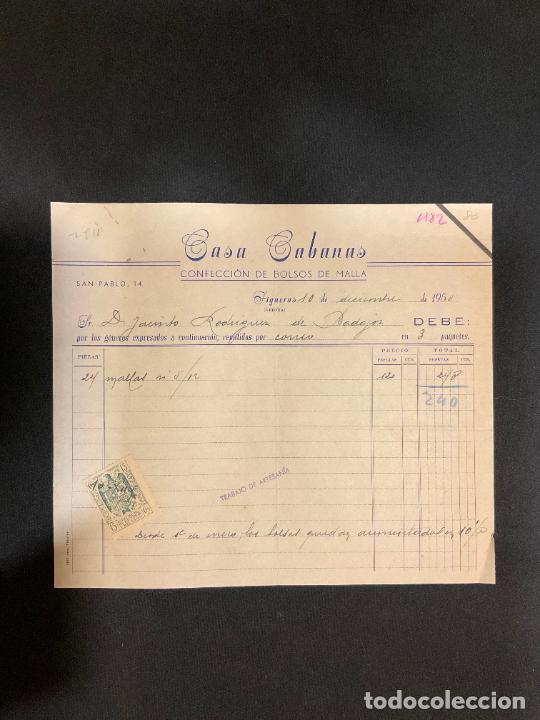 1182
Casa Cabanas
CONFECCIÓN DE BOLSOS DE MALLA
SAN PABLO, 14
Figueras 10 de diciembre de 1950
(GERONA)
Sr. D. Jacinto Rodriguez de Badajoz DEBE:
por los géneros expresados a continuación, remitidos por correo en 3 paquetes.
PIEZAS PRECIO TOTAL
PESETAS CTS. PESETAS CTS.
24 mallas nº 8/12 120 248
240
TRABAJO DE ARTESANÍA
Desde 1º de enero, los bolsos quedan aumentados en 10%
todocoleccion
todocoleccion.net